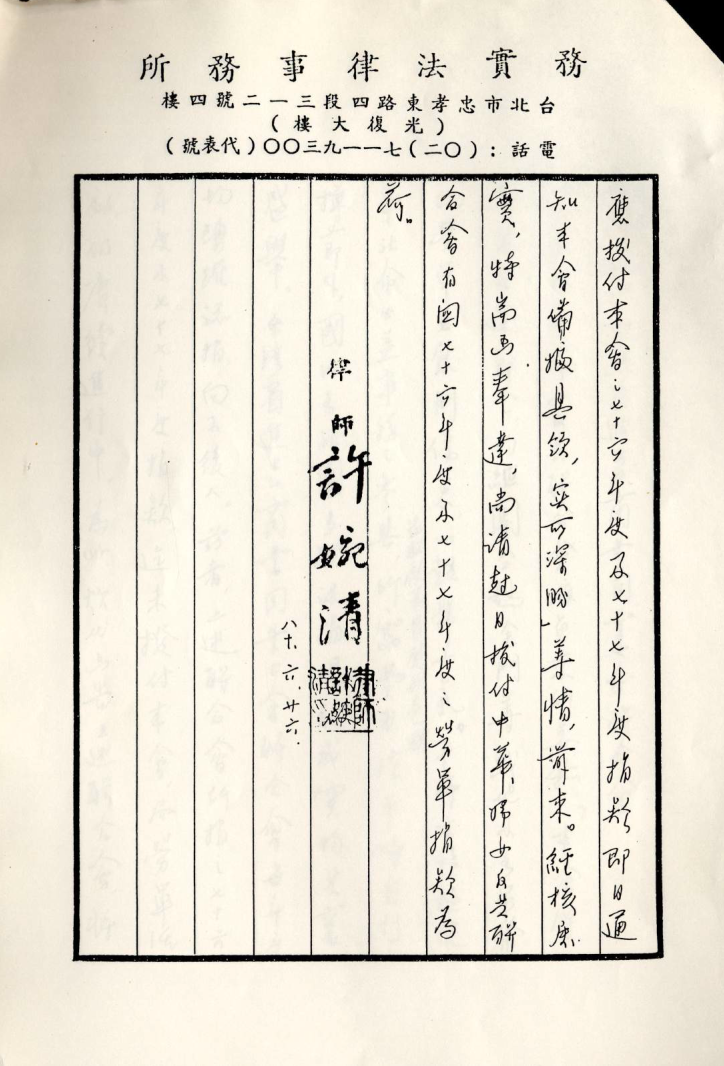 務實法律事務所
台北市忠孝東路四段三一二號四樓
(光復大樓)
電話：(〇二)七一一一九三〇〇(代表號)
應撥付本會之七十六年度及七十七年度捐款即日通
知本會備據具領，實所深盼」等情，前來。經核屬
實，特耑函奉達，尚請赴日撥付中華婦女反共聯
合會有關七十六年度及七十七年度之勞軍捐款為
荷。
律師 許婉清
八十.六.廿六.